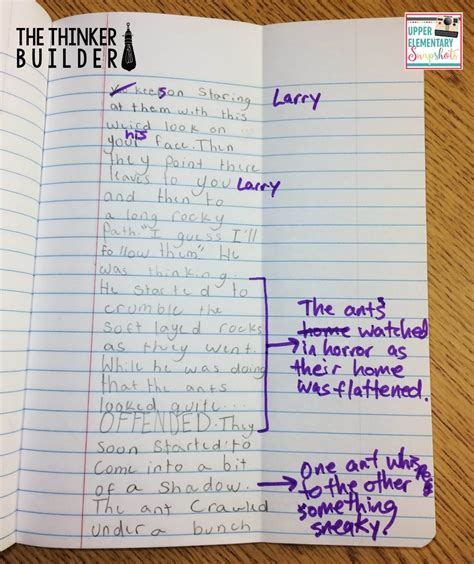 THE THINKER
BUILDER
UPPER
ELEMENTARY
Snapshots
You keepson Staring
Larry
at them with this
weird look on
your his face. Then
they point there
leaves to you Larry
and then to
a long rocky
Path. "I guess I'll
follow them" He
was thinking.
He started to
crumble the
soft layed rocks
as they went.
While he was doing
that the ants
looked quite...
OFFENDED. They
soon started to
Come into a bit
of a Shadow.
The ant Crawled
under a bunch
The ants
home watched
in horror as
their home
was flattened.
One ant whispers
to the other
something
sneaky?